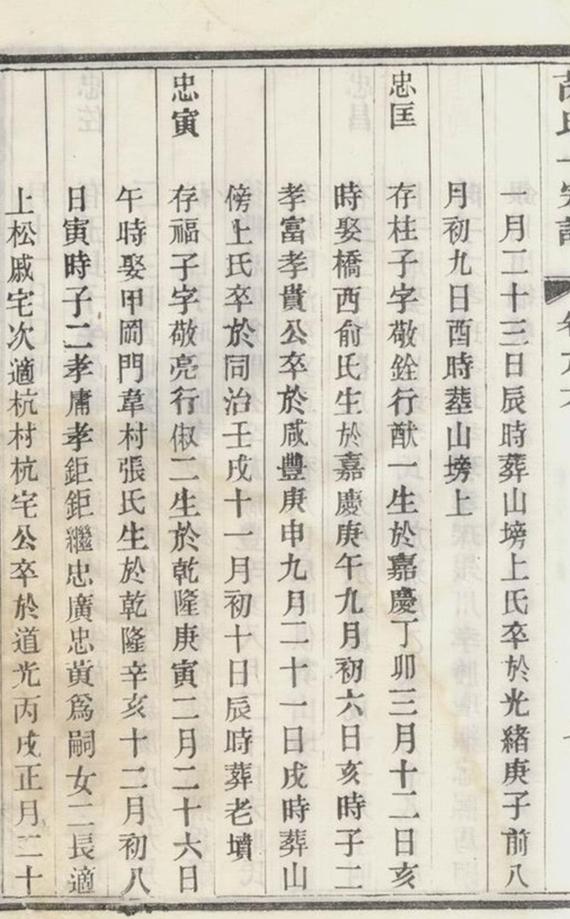 一月二十三日辰時葬山塝上氏卒於光緒庚子前八
月初九日酉時塟山塝上
忠匡 存柱子字敬銓行猷一生於嘉慶丁卯三月十二日亥
時娶橋西俞氏生於嘉慶庚午九月初六日亥時子二
孝富孝貴公卒於咸豐庚申九月二十一日戌時葬山
傍上氏卒於同治壬戌十一月初十日辰時葬老墳
忠寅 存福子字敬亮行俶二生於乾隆庚寅二月二十六日
午時娶甲岡門韋村張氏生於乾隆辛亥十二月初八
日寅時子二孝庸孝鉅鉅繼忠廣忠黄爲嗣女二長適
上松戚宅次適杭村杭宅公卒於道光丙戌正月二十